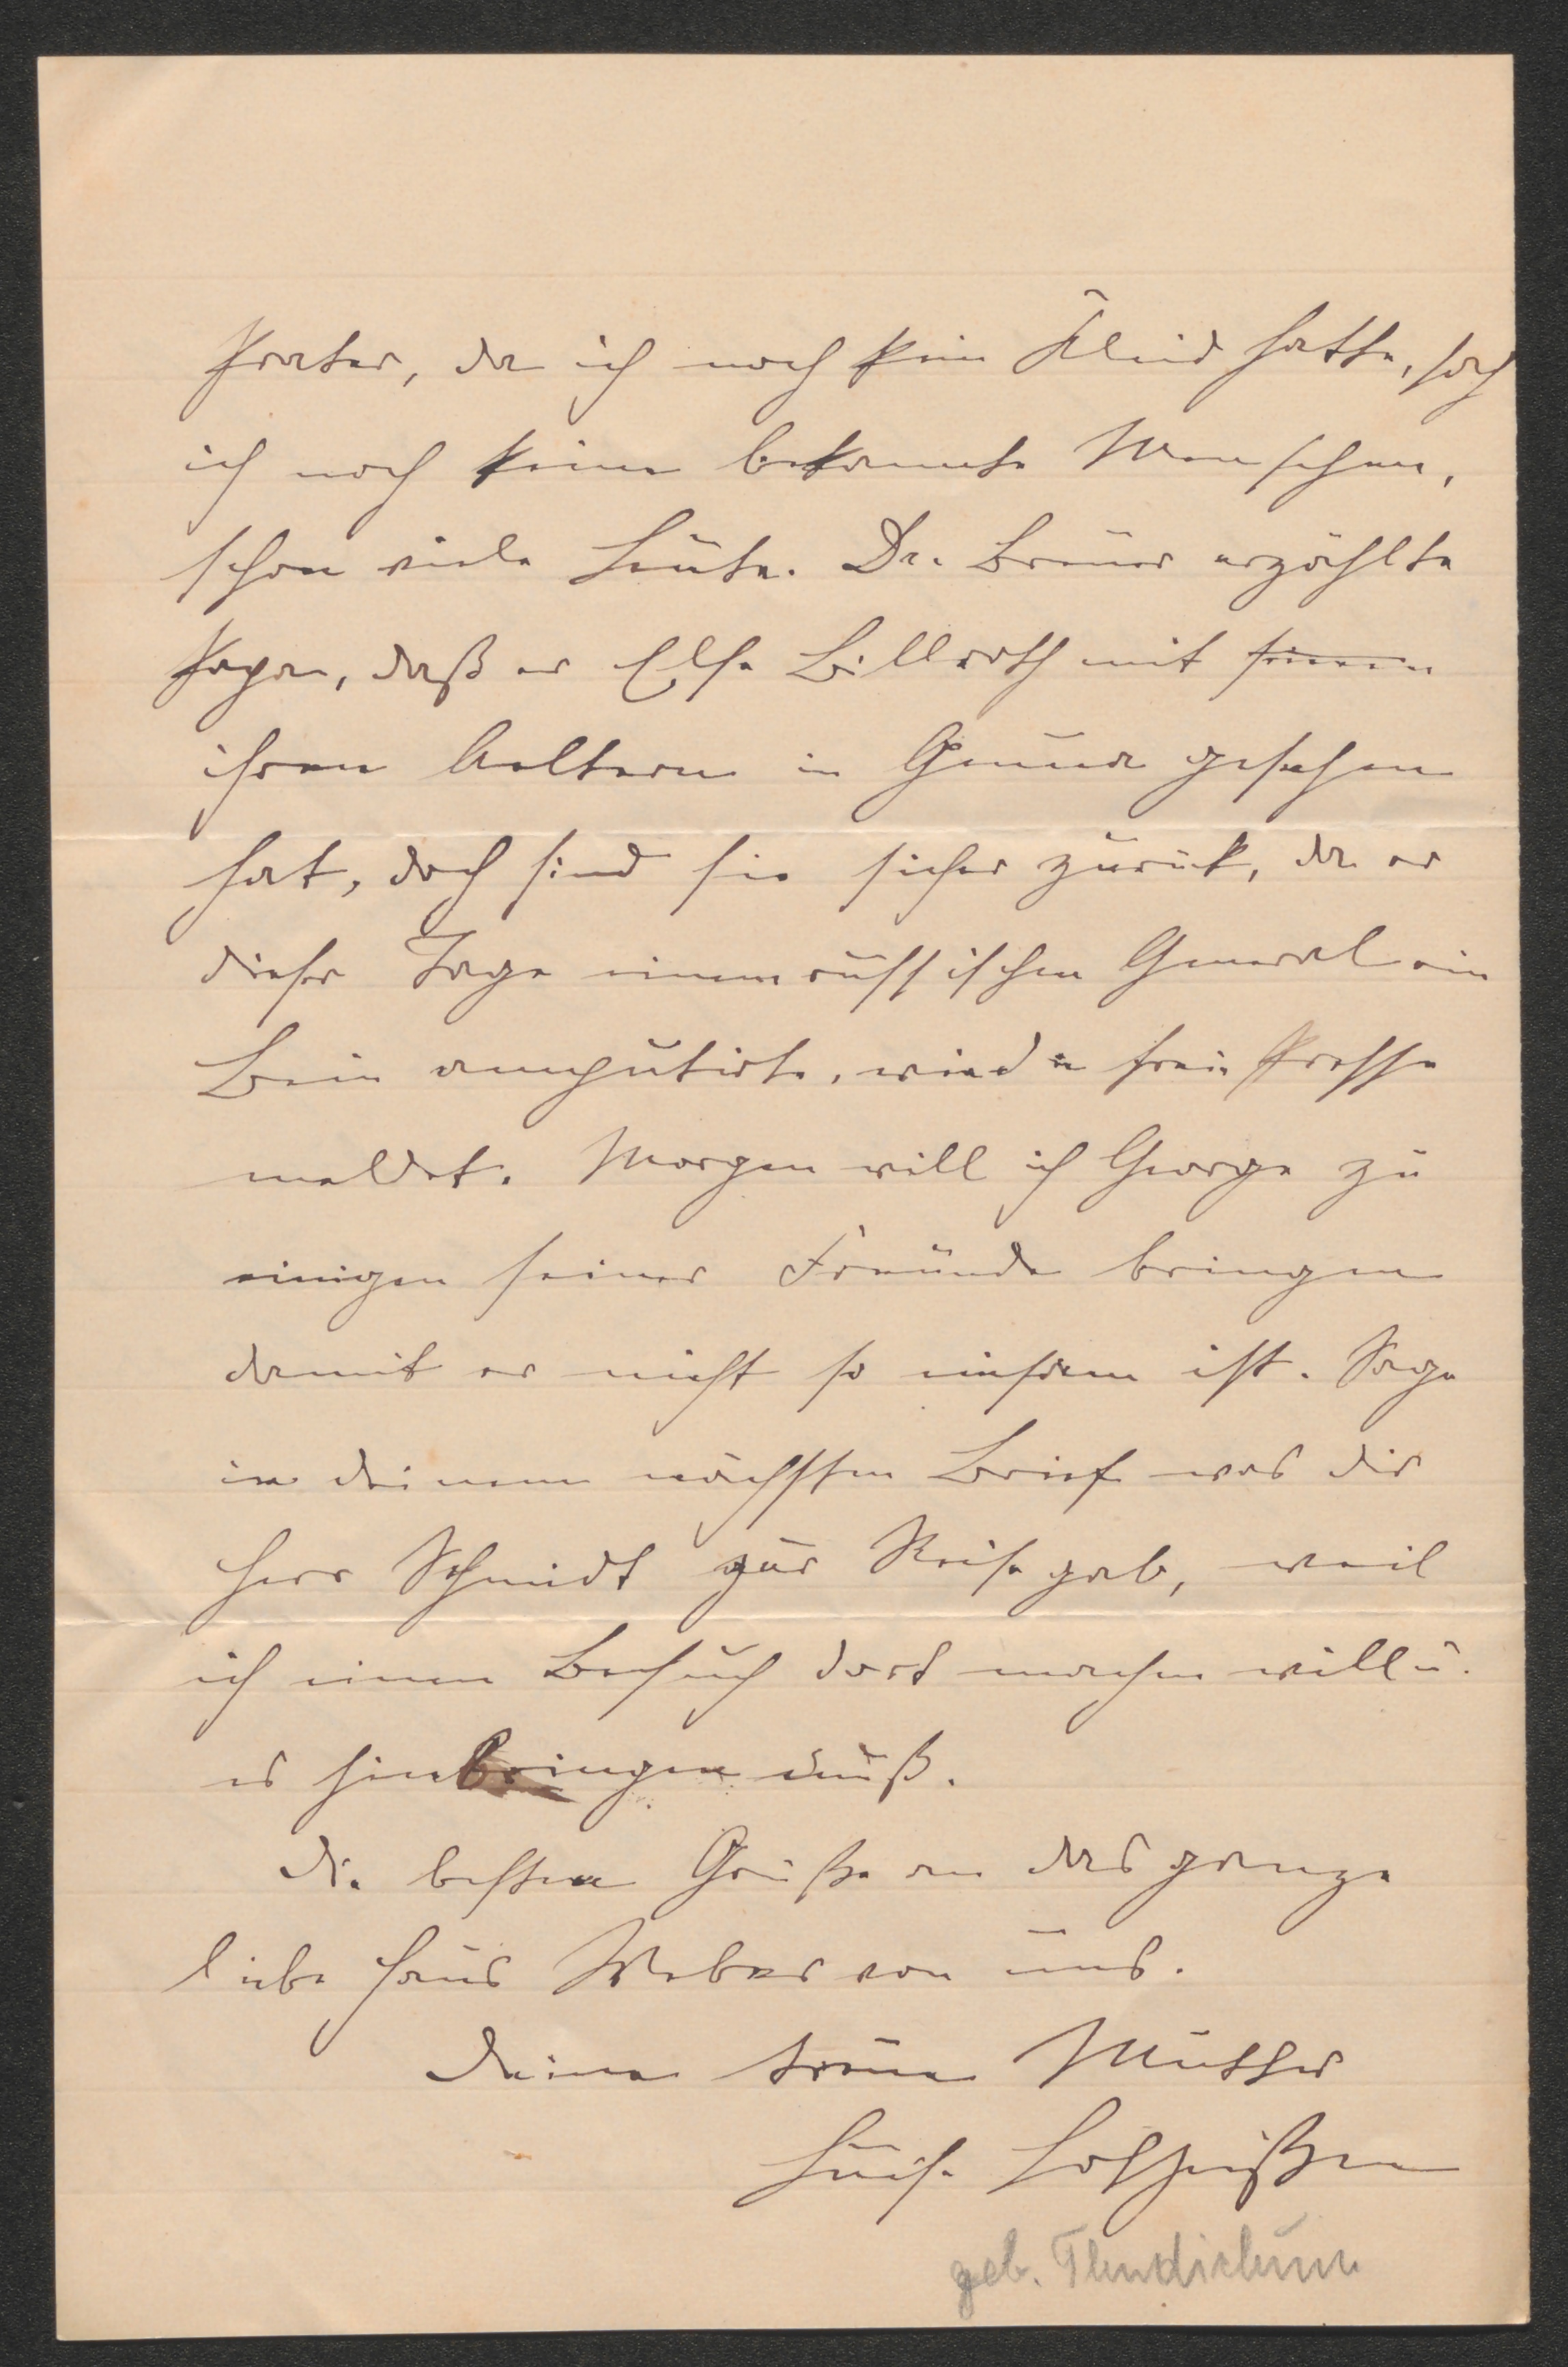 Prater, da ich noch kein Kleid hatte, sah
ich noch keine bekannte Menschen,
schon viele Leute. Dr. Breuer erzählte
Papa, daß er Else Billroth mit seinen
ihren Aeltern in Gmunden gesehen
hat, doch sind sie sicher zurück, da er
dieser Tage einem russischen General ein
Bein amputirte, wie d n freie Presse
meldet. Morgen will ich George zu
einigen seiner Freunde bringen
damit er nicht so einsam ist. Sage
in deinem nächsten Brief was dir
Herr Schmidt zur Reise gab, weil
ich einen Besuch dort machen will u.
es hinbringen muß.
Die besten Grüße an das ganze
liebe Haus Weber von uns.
Deine treue Mutter
Luise Lotheißen
geb. Thudichum